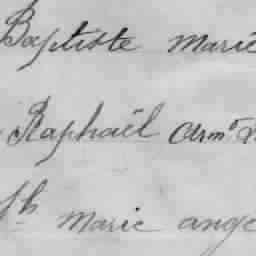 Baptiste Marie
Raphaël Arm^d
ph Marie ange